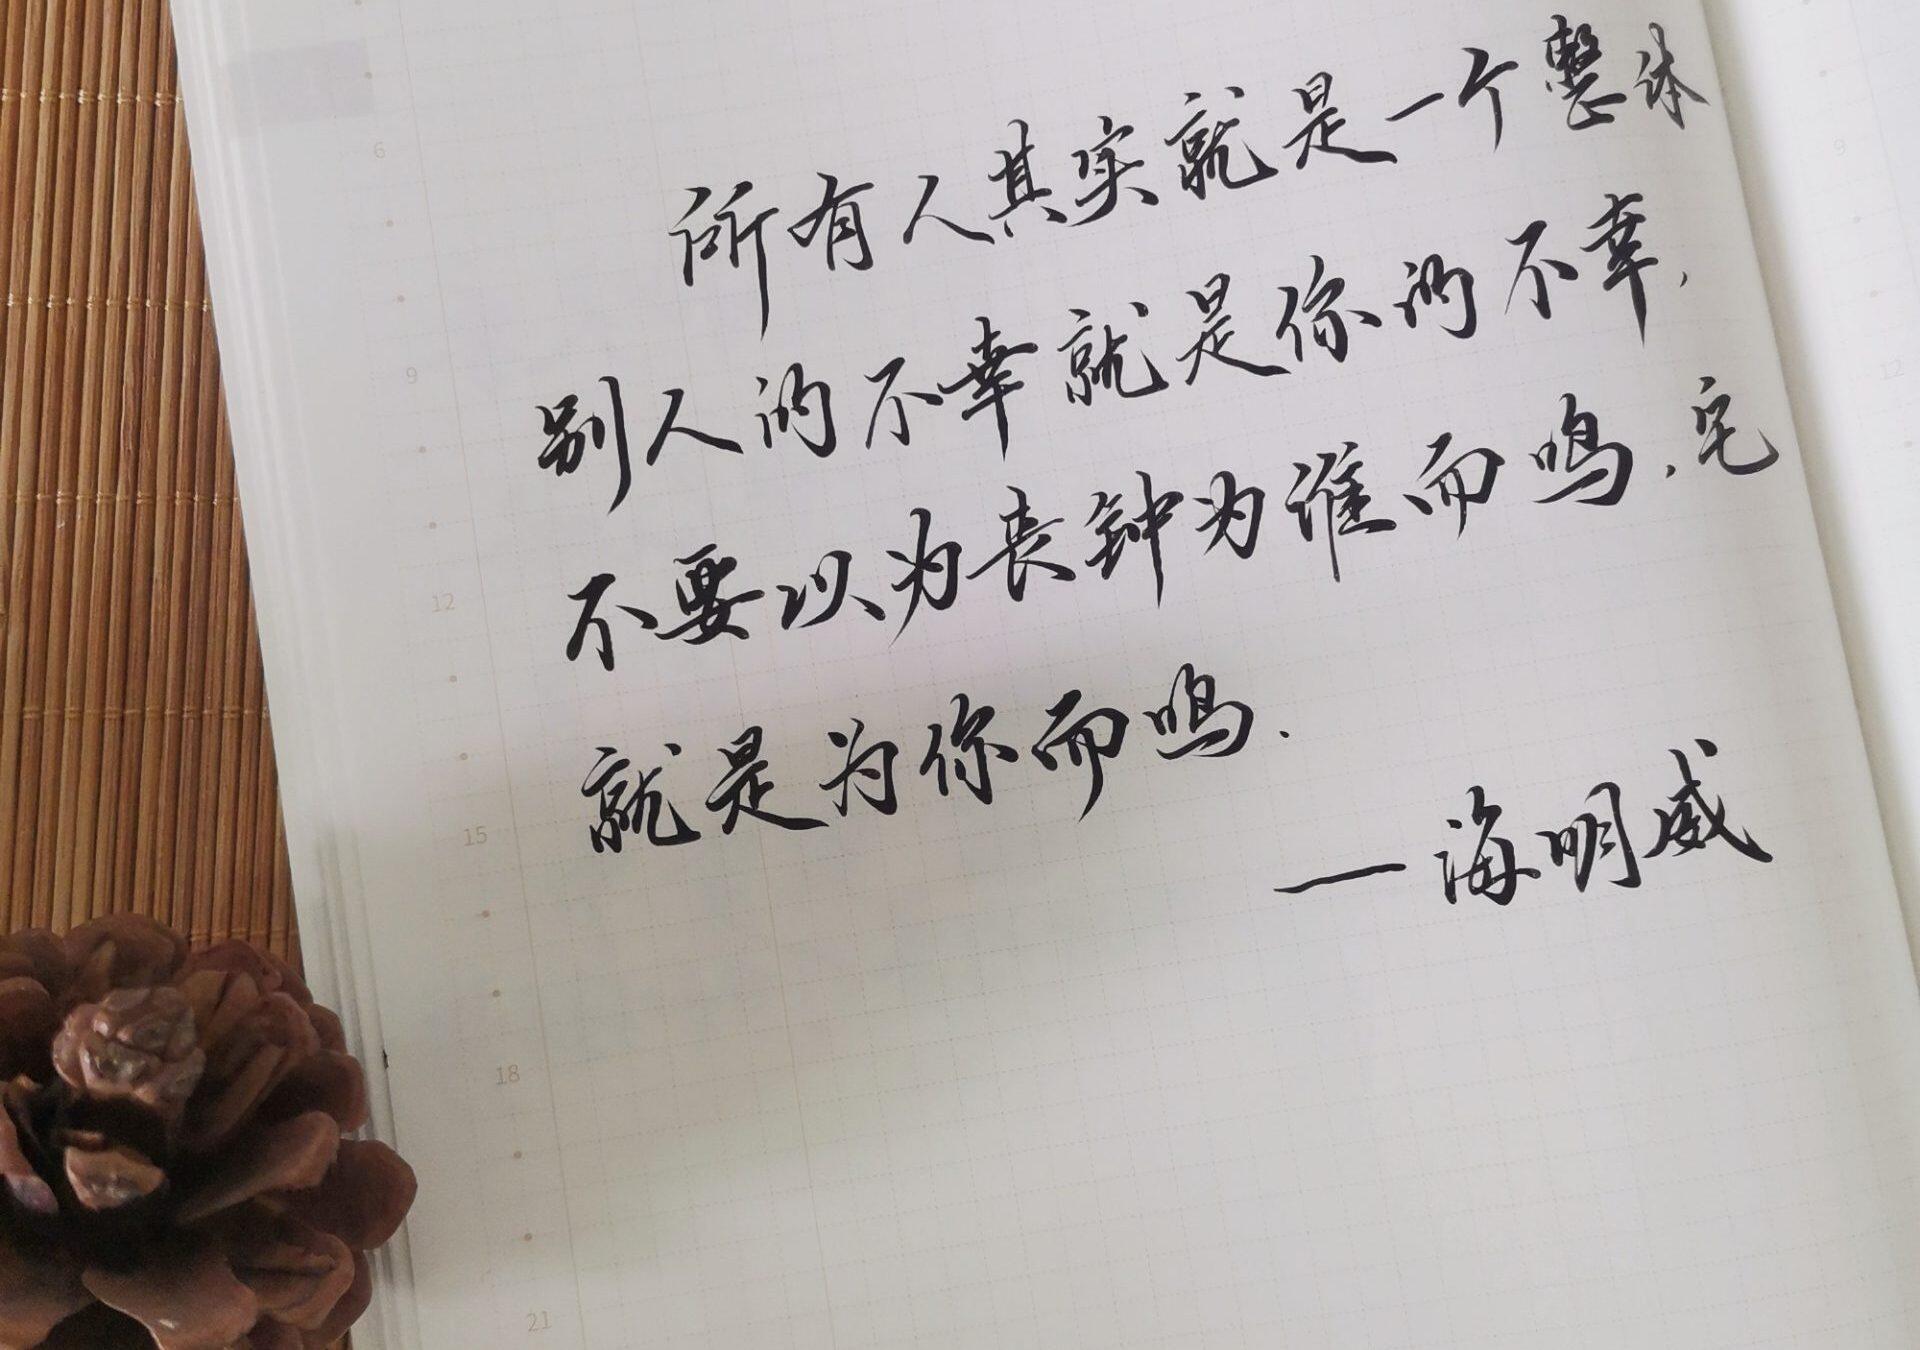 所有人其实就是一个整体
别人的不幸就是你的不幸,
不要以为丧钟为谁而鸣,它
就是为你而鸣.
—海明威
6
9
12
15
18
21
9
12